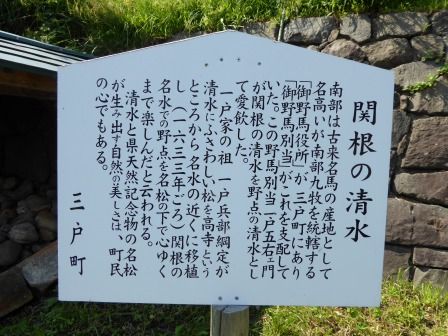 関根の清水
南部は古来名馬の産地として
名高いが南部九牧を統轄する
「御野馬役所」が三戸町にあり
「御野馬別当」がこれを支配して
いた。この野馬別当一戸五右エ門
が関根の清水を野点の清水とし
て愛飲した。
一戸家の祖 一戸兵部綱定が
清水にふさわしい松を高寺という
ところから名水の近くに移植
し(一六三三年ごろ)関根の
名水での野点を名松の下で心ゆく
まで楽しんだと云われる。
清水と県天然記念物の名松
が生み出す自然の美しさは、町民
の心でもある。
三戸町